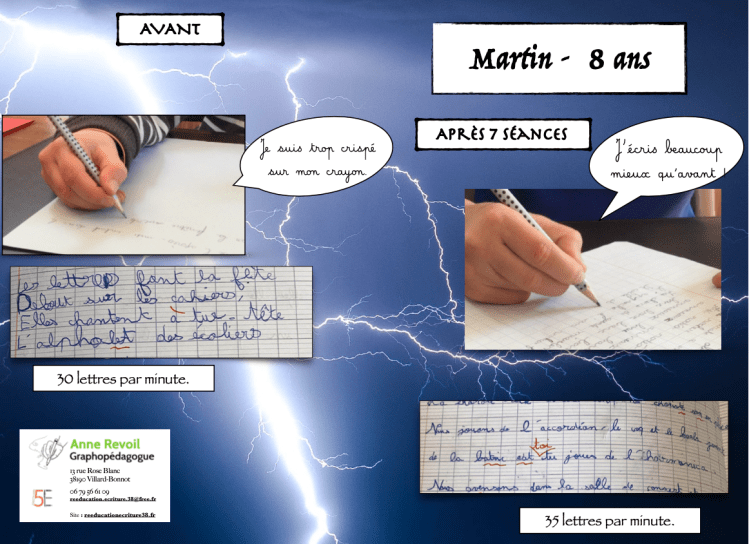 AVANT
Martin - 8 ans
APRÈS 7 SÉANCES
Je suis trop crispé
sur mon crayon.
J'écris beaucoup
mieux qu'avant !
Les lettres font la fête
Debout sur les cahiers,
Elles chantent à tue-tête
L'alphabet des écoliers
30 lettres par minute.
Nous jouons de l'accordéon, le
de la et toi tu joues de l'
Nous avançons dans la salle de concert et
35 lettres par minute.
Anne Revoil
Graphopédagogue
13 rue Rose Blanc
38190 Villard-Bonnot
06 79 56 61 09
reeducation.ecriture.38@free.fr
5E
Site : reeducationecriture38.fr